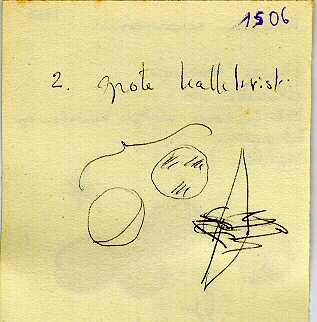 1506
2. grote kalkkrist.